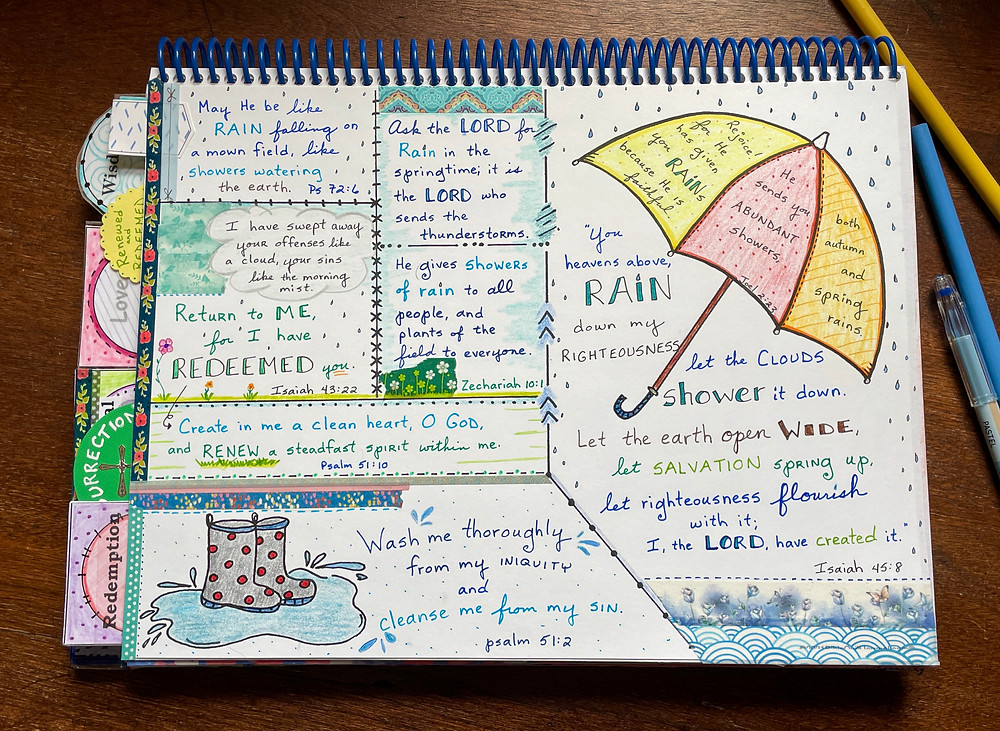 May He be like
RAIN falling on
a mown field, like
showers watering
the earth. Ps 72:6
I have swept away
your offenses like
a cloud, your sins
like the morning
mist.
Return to ME,
for I have
REDEEMED you.
Isaiah 43:22
Ask the LORD for
Rain in the
springtime; it is
the LORD who
sends the
thunderstorms.
He gives showers
of rain to all
people, and
plants of the
field to everyone.
Zechariah 10:1
Create in me a clean heart, O GOD,
and RENEW a steadfast spirit within me.
Psalm 51:10
Wash me thoroughly
from my INIQUITY
and
cleanse me from my SIN.
psalm 51:2
Rejoice!
for He
has given
you RAIN
because He is
faithful
He
sends you
ABUNDANT
showers,
Joel 2:23
both
autumn
and
spring
rains.
"You
heavens above,
RAIN
down my
RIGHTEOUSNESS
let the CLOUDS
shower it down.
Let the earth open WIDE,
let SALVATION spring up,
let righteousness flourish
with it;
I, the LORD, have created it."
Isaiah 45:8
Wisd
Renewed
and
REDEEMED
Love
al
URRECTION
Redemption
PASTEL